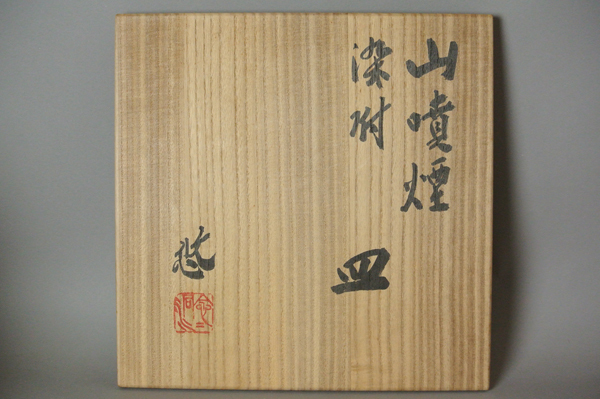 山噴煙
染附
皿
悠